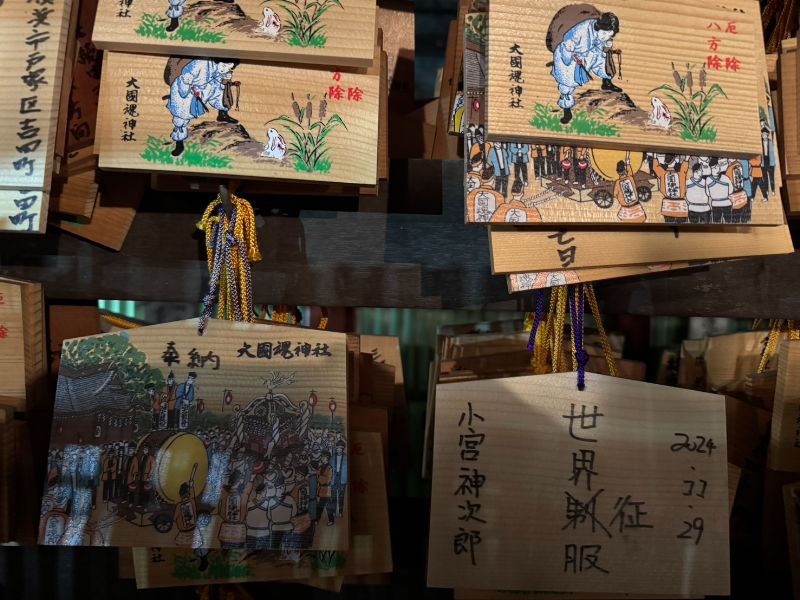 市戸塚区吉田町
田町
大國魂神社
除
方除
大國魂神社
厄除
八方除
大國魂神社
奉納
大國魂神社
2024.33.29
世界征服
小宮神次郎